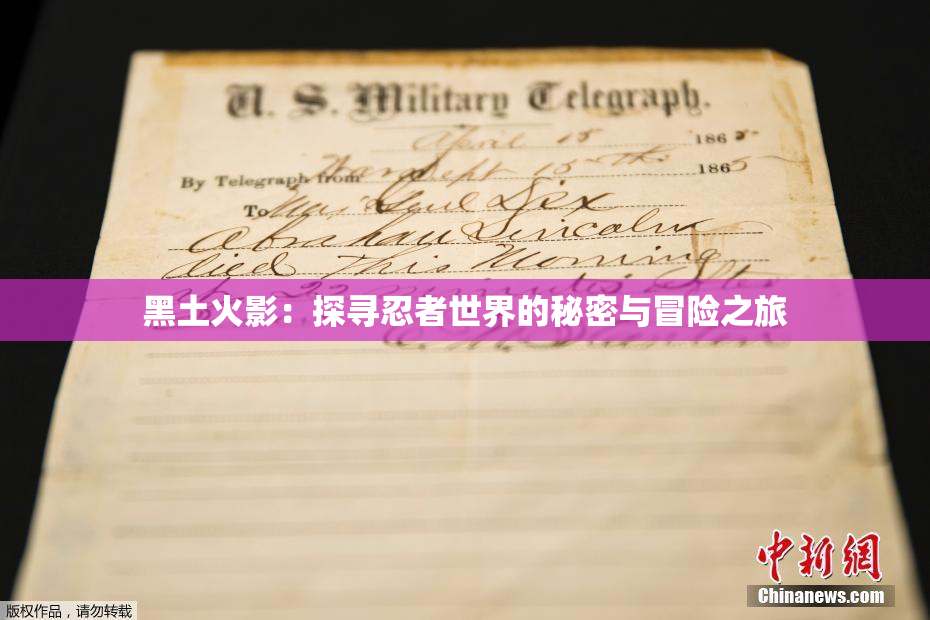 U. S. Military Telegraph.
April 15 1865
By Telegraph from War Dept 15th 1865
To Maj Genl Dix
Abraham Lincoln
died This Morning
at 22 minutes after
黑土火影：探寻忍者世界的秘密与冒险之旅
E. M. Stanton
中新网
Chinanews.com
版权作品，请勿转载